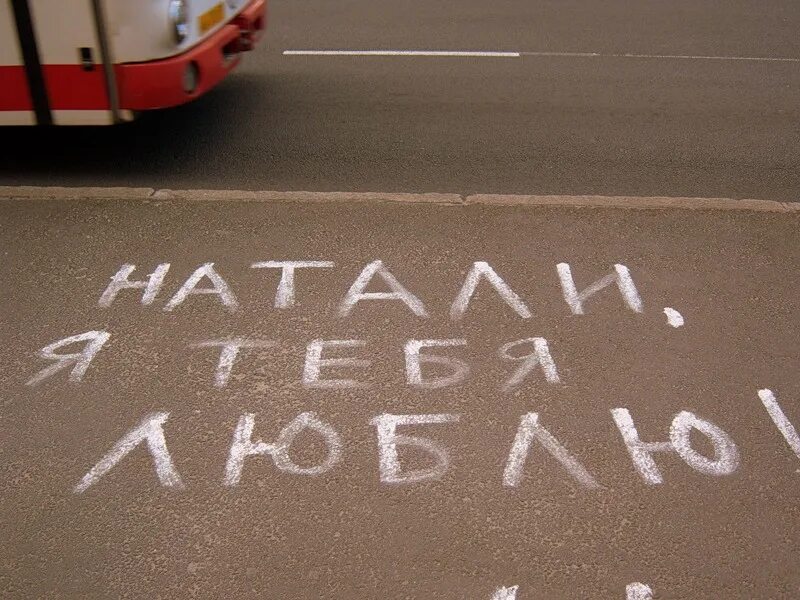 НАТАЛИ,
Я ТЕБЯ
ЛЮБЛЮ!